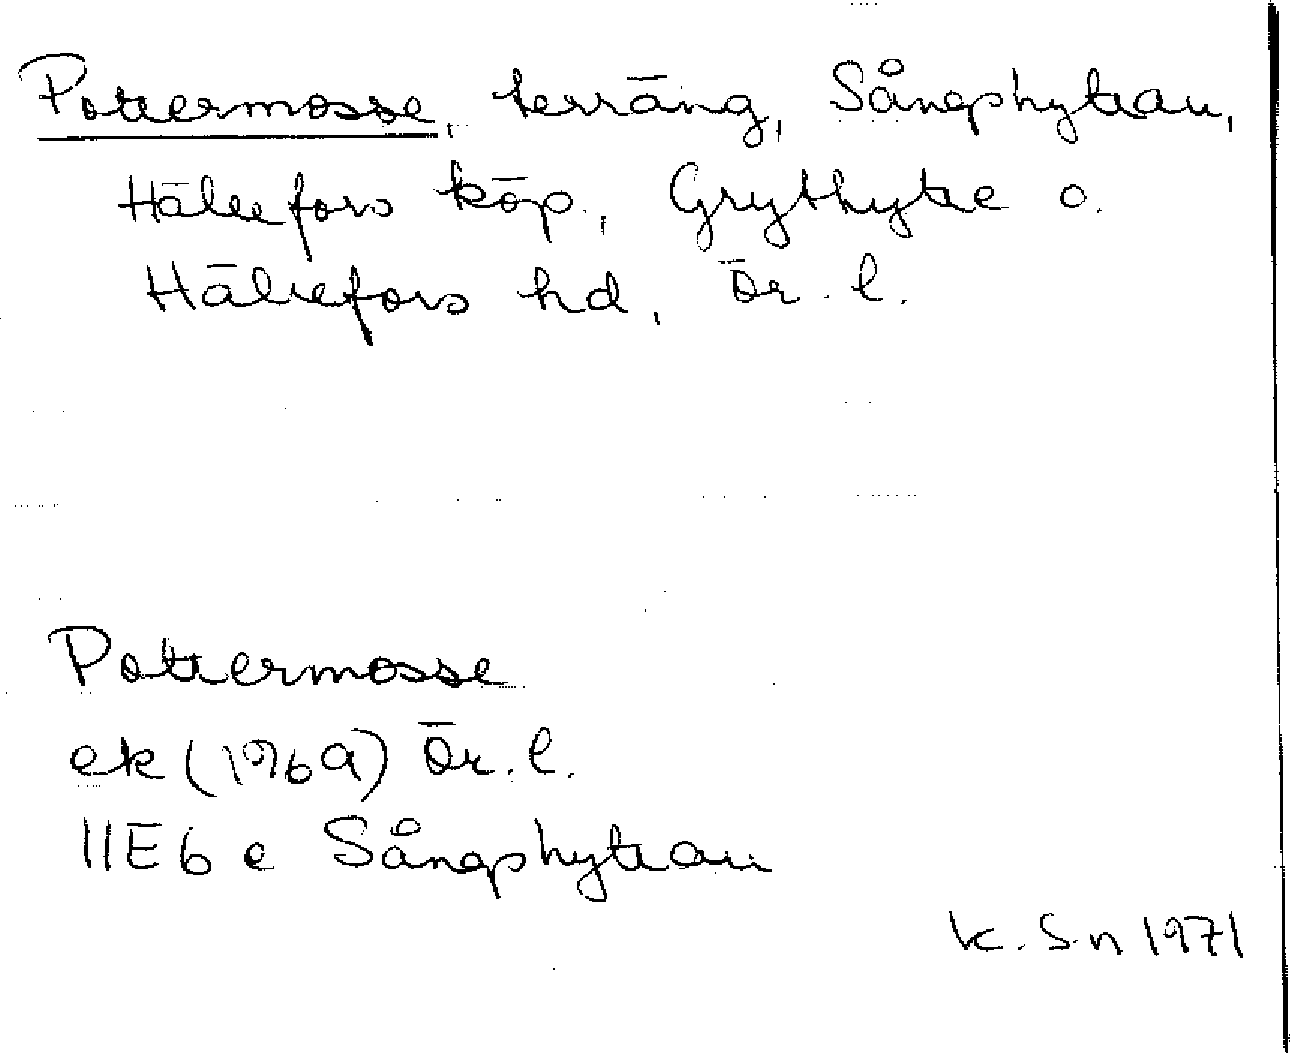 Pottermosse, terräng, Sångshyttan,
Hällefors köp., Grythytte o.
Hällefors hd, Ör. l.
Pottermosse
ek (1969) Ör. l.
11E6e Sångshyttan
K. Sn 1971